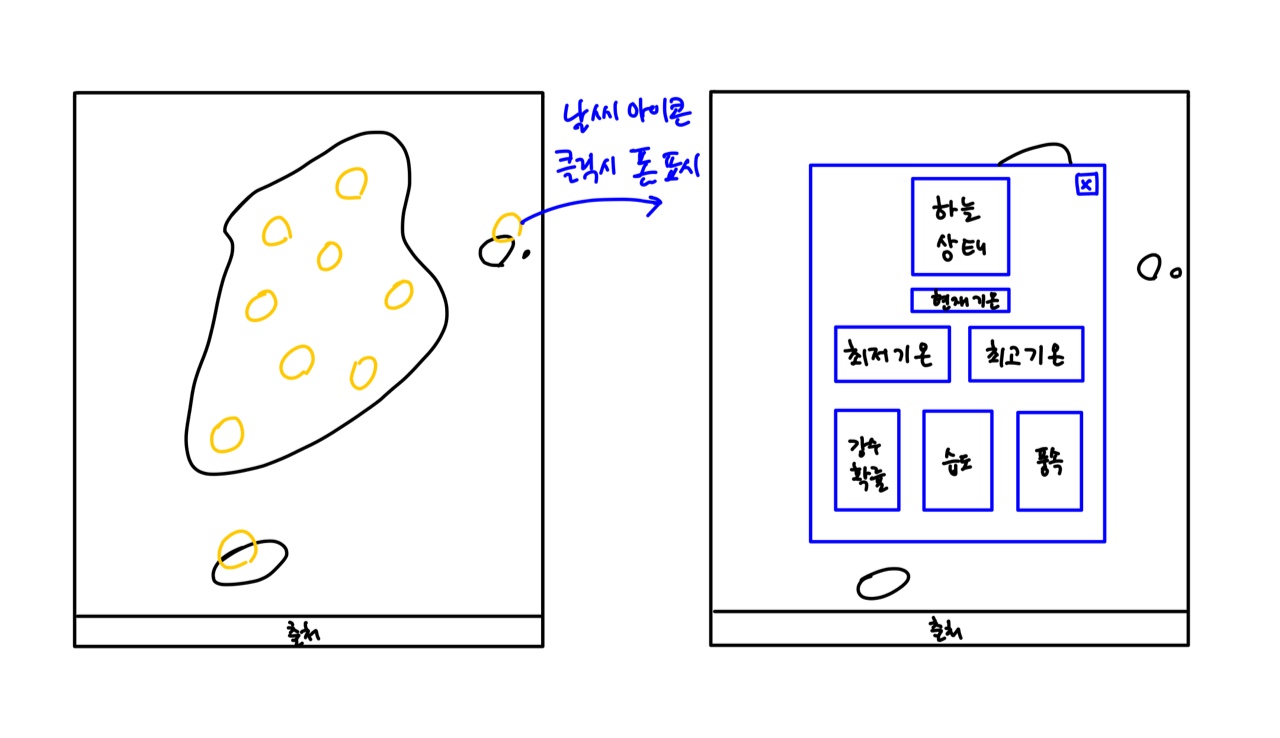 날씨 아이콘
클릭시 폰 표시
하늘
상태
현재기온
최저기온
최고기온
강수
확률
습도
풍속
출처
출처